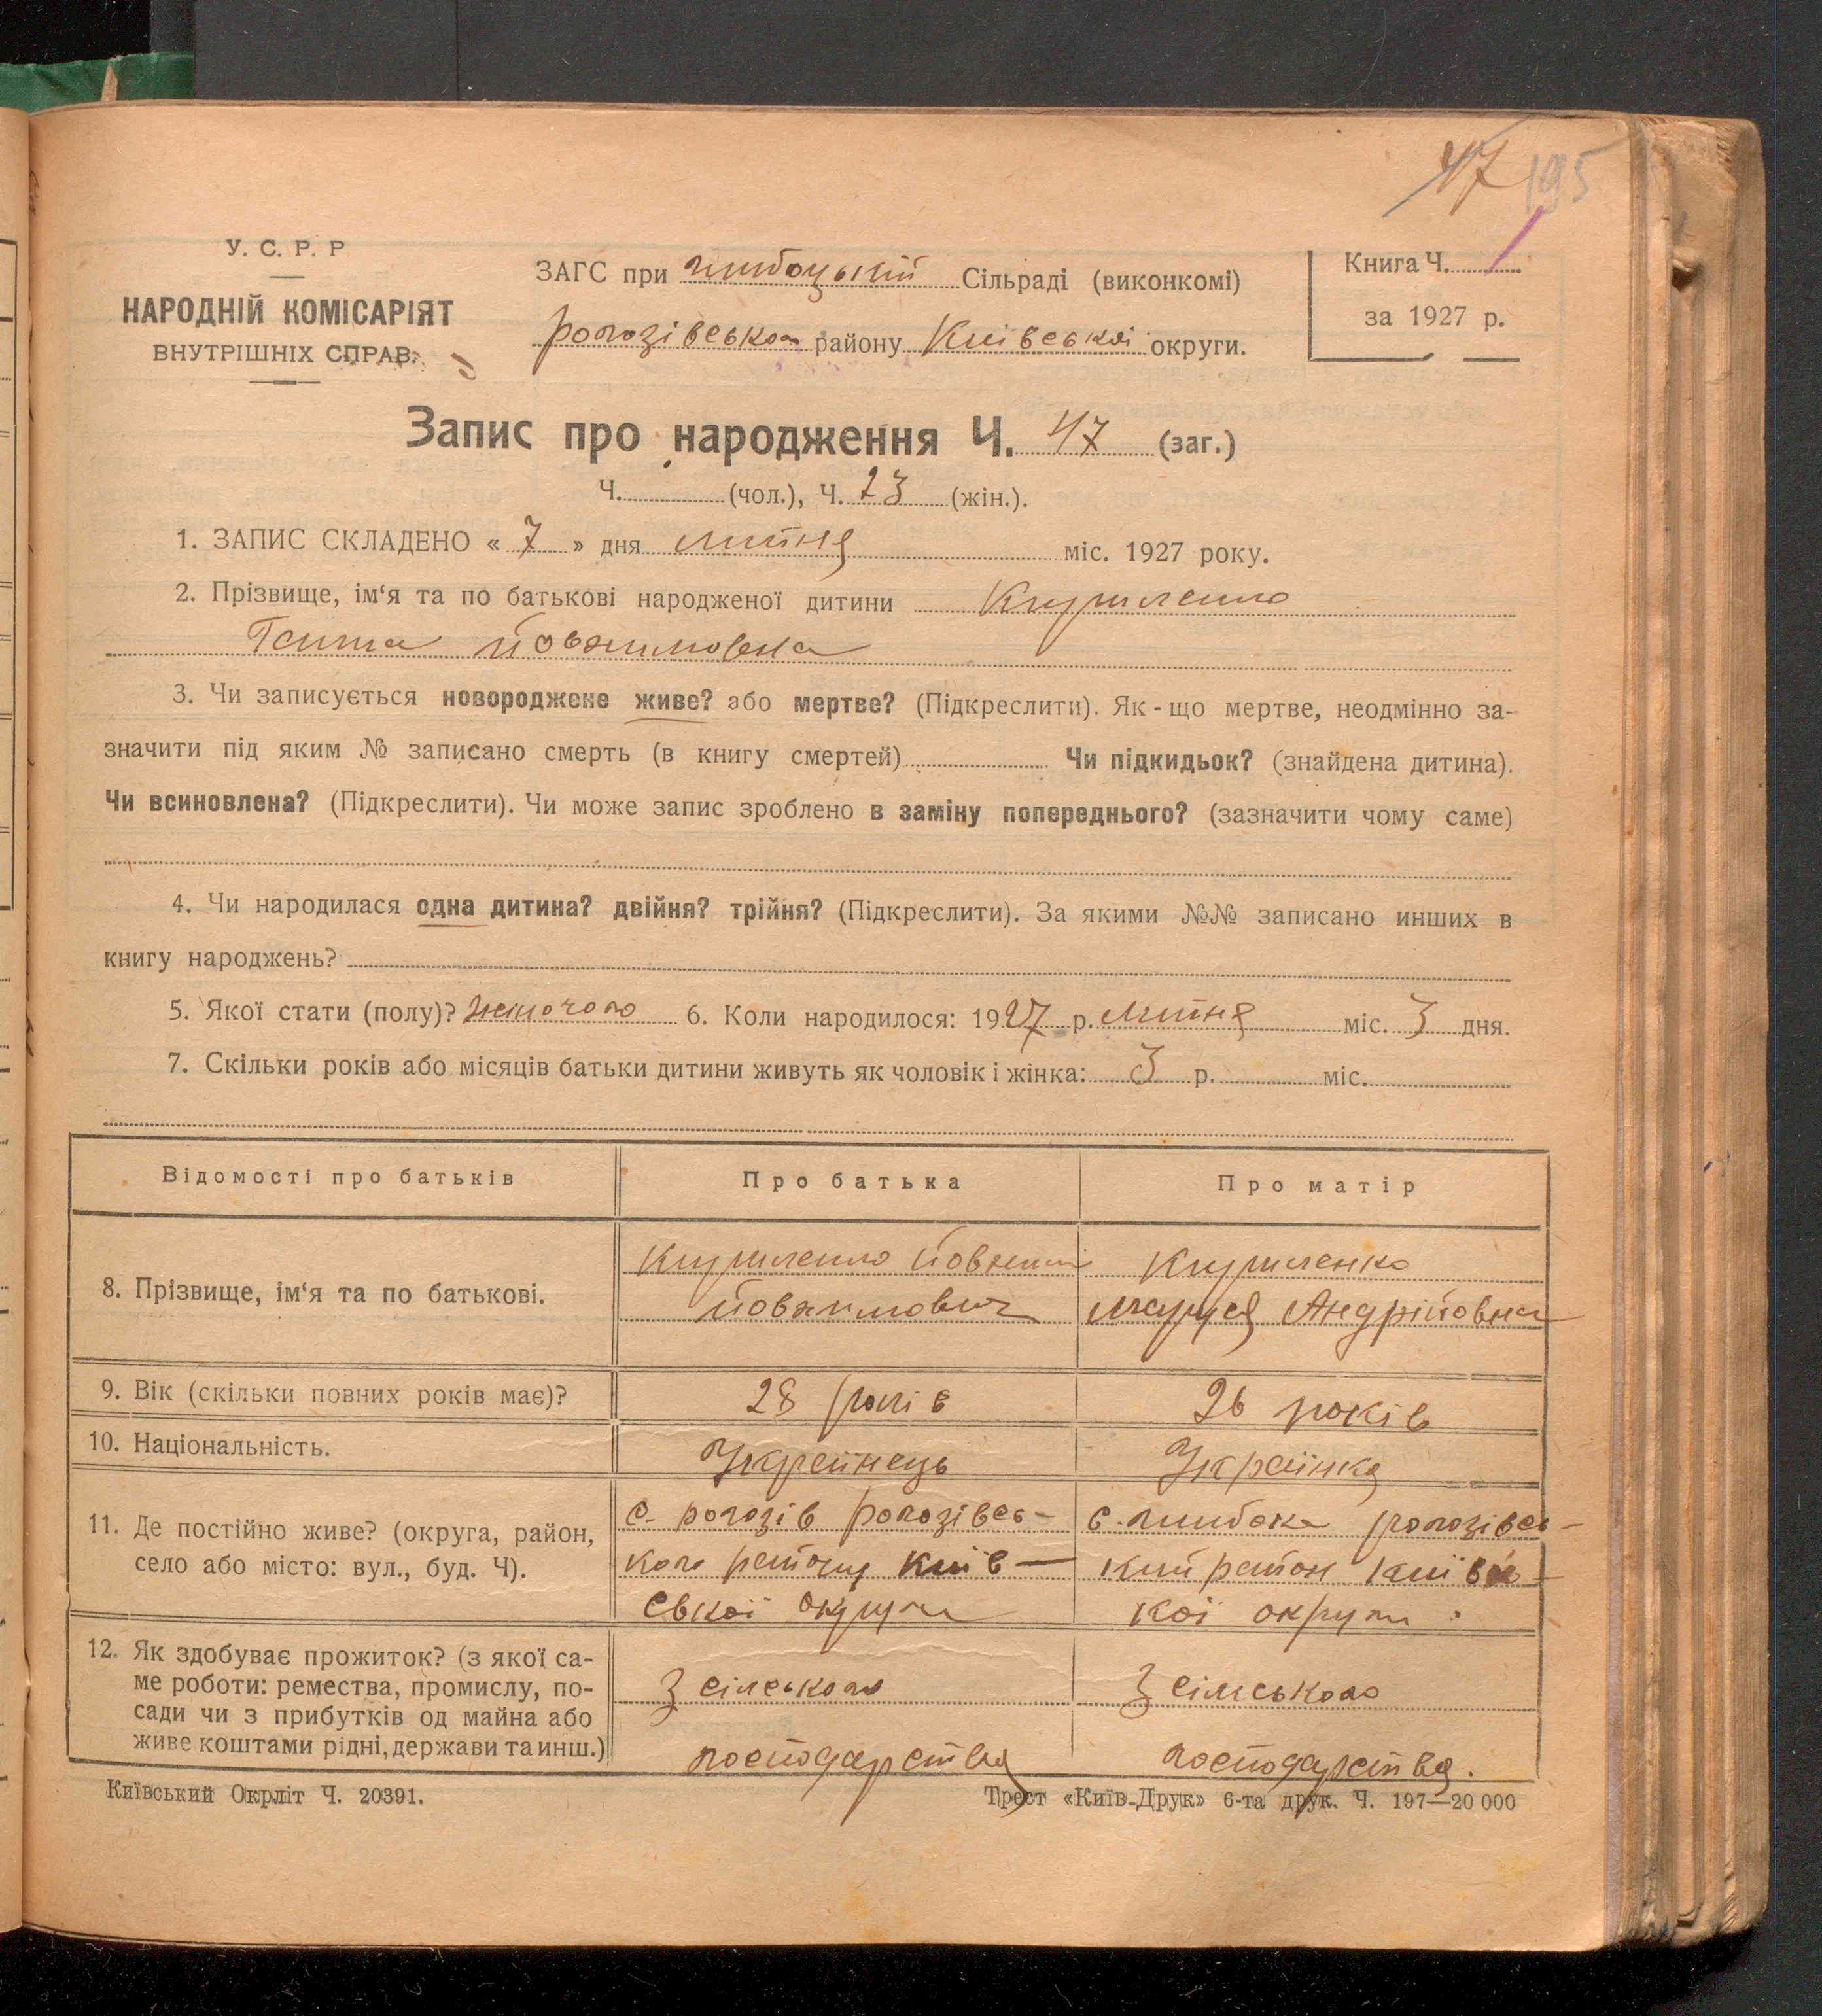 47 195
У. С. Р. Р
НАРОДНІЙ КОМІСАРІЯТ
ВНУТРІШНІХ СПРАВ.
ЗАГС при глибоцькій Сільраді (виконкомі)
рогозівського району Київської округи.
Книга Ч. 1
за 1927 р.
Запис про народження Ч. 47 (заг.)
Ч. (чол.), Ч. 23 (жін.).
1. ЗАПИС СКЛАДЕНО « 7 » дня липня міс. 1927 року.
2. Прізвище, ім‘я та по батькові народженої дитини
3. Чи записується новороджене живе? або мертве? (Підкреслити). Як-що мертве, неодмінно за-
значити під яким № записано смерть (в книгу смертей) Чи підкидьок? (знайдена дитина).
Чи всиновлена? (Підкреслити). Чи може запис зроблено в заміну попереднього? (зазначити чому саме)
4. Чи народилася одна дитина? двійня? трійня? (Підкреслити). За якими №№ записано инших в
книгу народжень?
5. Якої стати (полу)? жіночого 6. Коли народилося: 1927 р. липня міс. 3 дня.
7. Скільки років або місяців батьки дитини живуть як чоловік і жінка: 3 р. міс.
Відомості про батьків
Про батька
Про матір
8. Прізвище, ім‘я та по батькові.
Маруся Андрійовна
9. Вік (скільки повних років має)?
28 років
26 років
10. Національність.
Українець
Українка
11. Де постійно живе? (округа, район,
село або місто: вул., буд. Ч).
с. рогозів рогозівсь-
кого району київ-
ської округи
с. глибока рогозівсь-
кий район київсь-
кої округи.
12. Як здобуває прожиток? (з якої са-
ме роботи: ремества, промислу, по-
сади чи з прибутків од майна або
живе коштами рідні, держави та инш.)
З сільського
господарства
З сільського
господарства.
Київський Окрліт Ч. 20391.
Трест «Київ-Друк» 6-та друк. Ч. 197—20 000